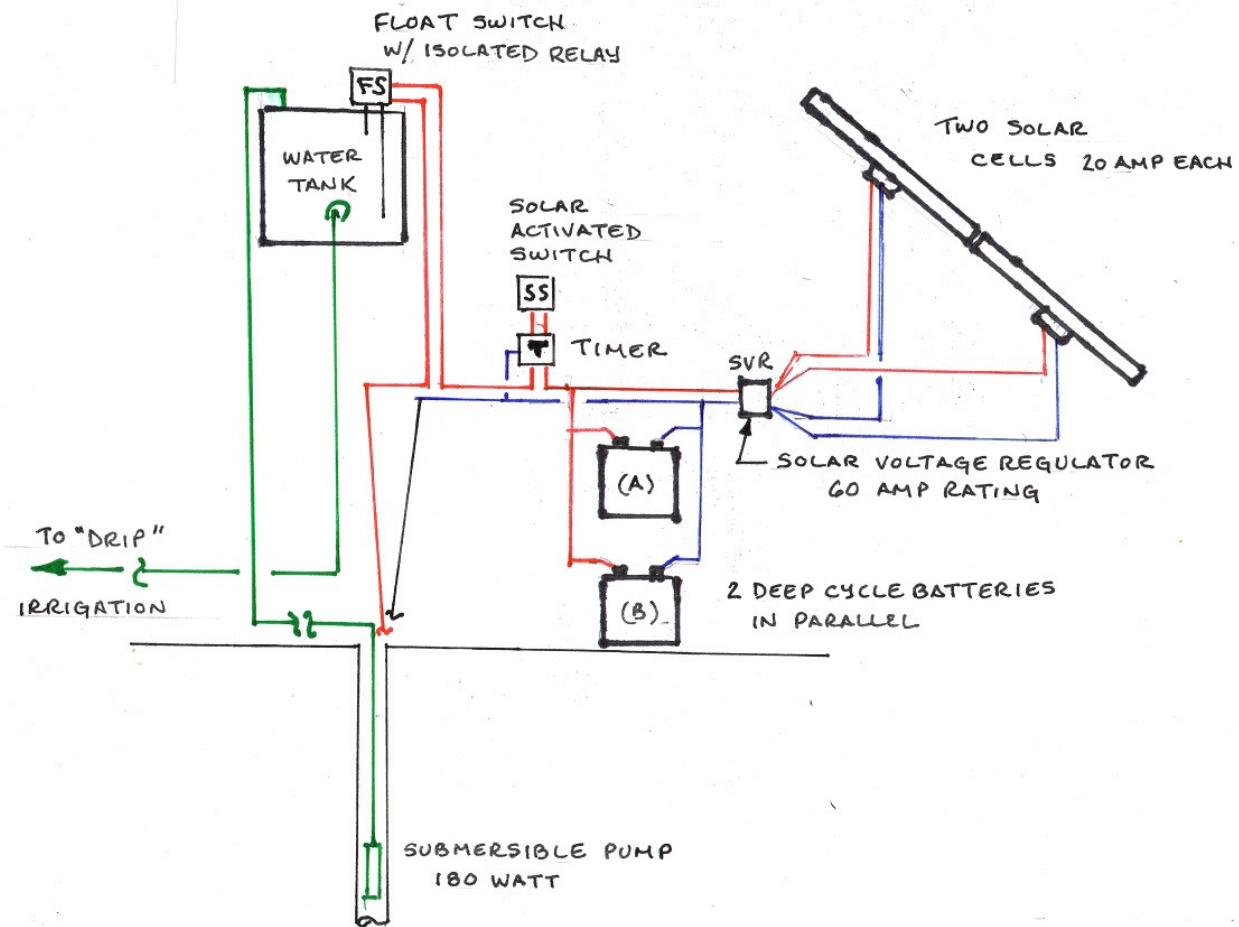 FLOAT SWITCH
W/ ISOLATED RELAY
FS
WATER
TANK
TWO SOLAR
CELLS 20 AMP EACH
SOLAR
ACTIVATED
SWITCH
SS
T
TIMER
SVR
SOLAR VOLTAGE REGULATOR
60 AMP RATING
(A)
TO "DRIP"
IRRIGATION
(B)
2 DEEP CYCLE BATTERIES
IN PARALLEL
SUBMERSIBLE PUMP
180 WATT